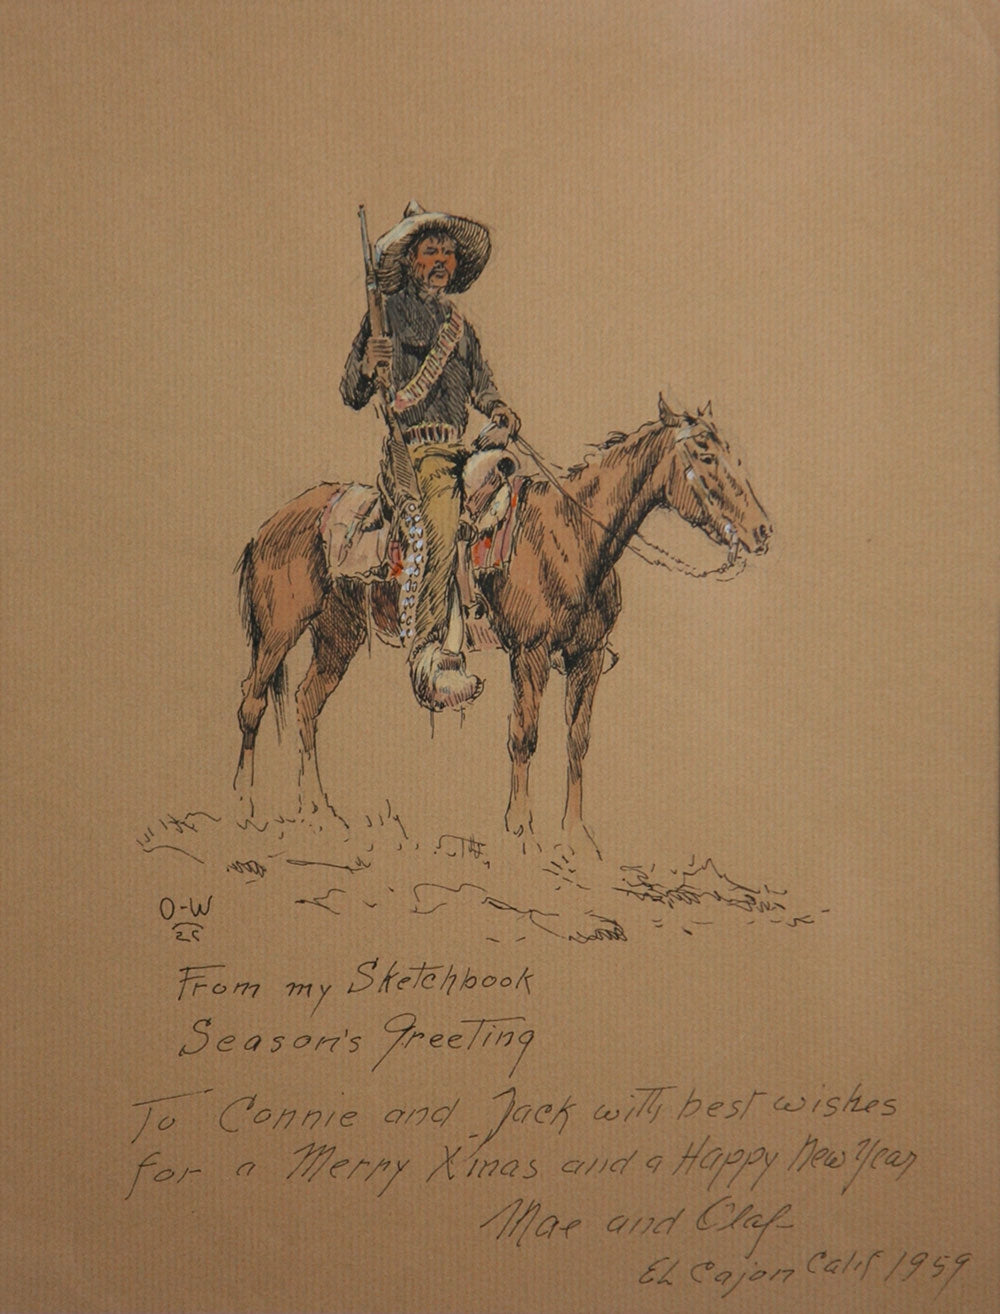 O-W
25
From my Sketchbook
Season's Greeting
To Connie and Jack with best wishes
for a Merry X'mas and a Happy New Year
Mae and Olaf
El Cajon Calif 1959